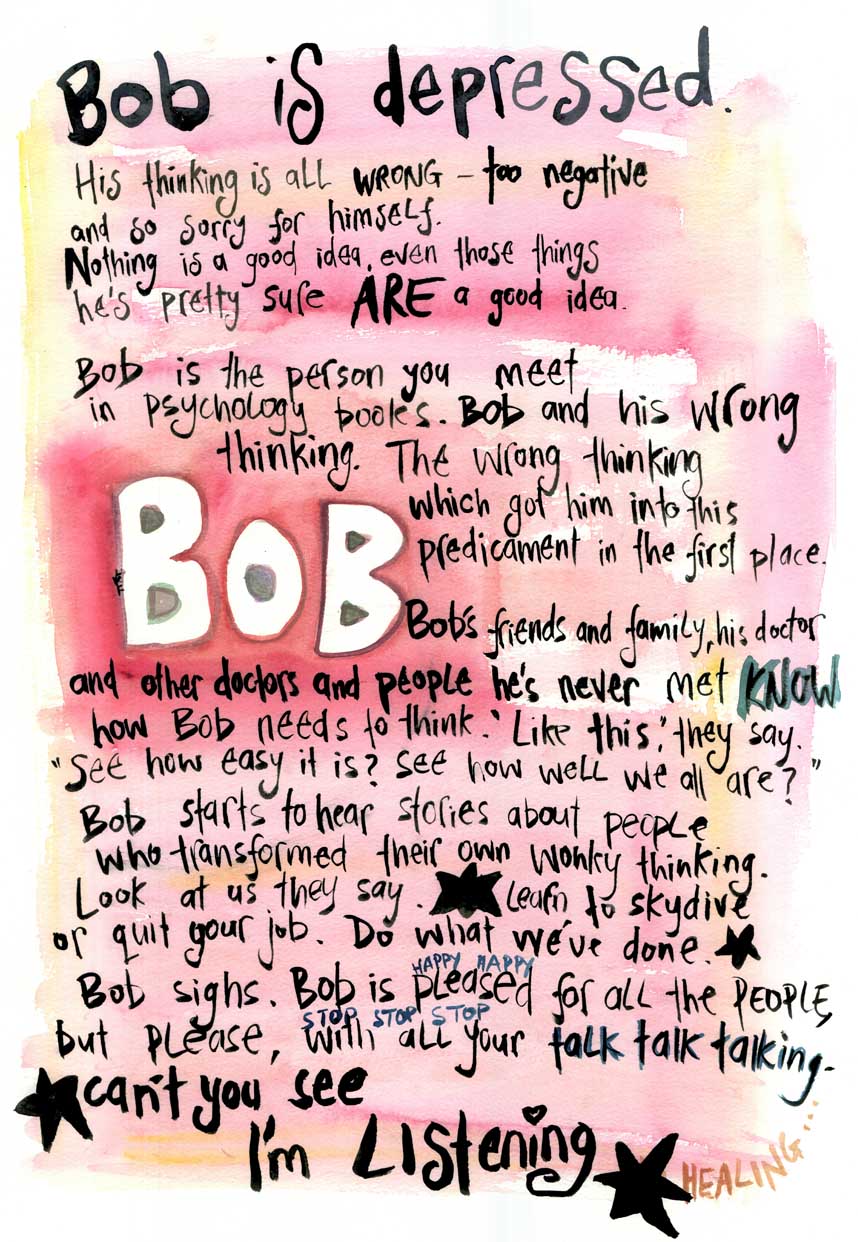 Bob is depressed.
His thinking is all WRONG - too negative
and so sorry for himself.
Nothing is a good idea, even those things
he's pretty sure ARE a good idea.
Bob is the person you meet
in psychology books. Bob and his wrong
thinking. The wrong thinking
which got him into this
predicament in the first place.
BOB
Bob's friends and family, his doctor
and other doctors and people he's never met KNOW
how Bob needs to think. 'Like this,' they say.
"See how easy it is? See how well we all are?"
Bob starts to hear stories about people
who transformed their own wonky thinking.
Look at us they say. Learn to skydive
or quit your job. Do what we've done.
HAPPY HAPPY
Bob sighs. Bob is pleased for all the PEOPLE,
STOP STOP STOP
but please, with all your talk talk talking.
can't you see
I'm Listening
HEALING...